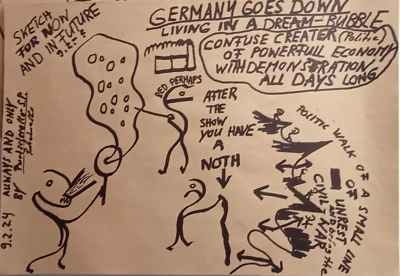 SKETCH
FOR NOW
AND IN FUTURE
9.2.24
GERMANY GOES DOWN
LIVING IN A DREAM-BUBBLE
CONFUSE CREATER (Politic)
OF POWERFULL ECONOMY
WITH DEMONSTRATION
ALL DAYS LONG
RED PERHAPS
AFTER
THE
SHOW
YOU HAVE
A
NOTH
POLITIC WALK OF A SMALL LINE
OF UNREST
CIVIL WAR
ALWAYS AND ONLY
BY
9.2.24